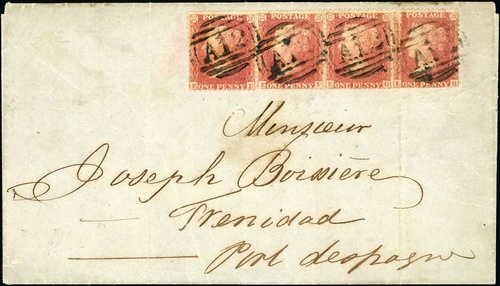 POSTAGE POSTAGE POSTAGE POSTAGE
A12 A1 A12 A1
ONE PENNY ONE PENNY ONE PENNY ONE PENNY
Minsieur
Joseph Boissière
Trenidad
Port despagne